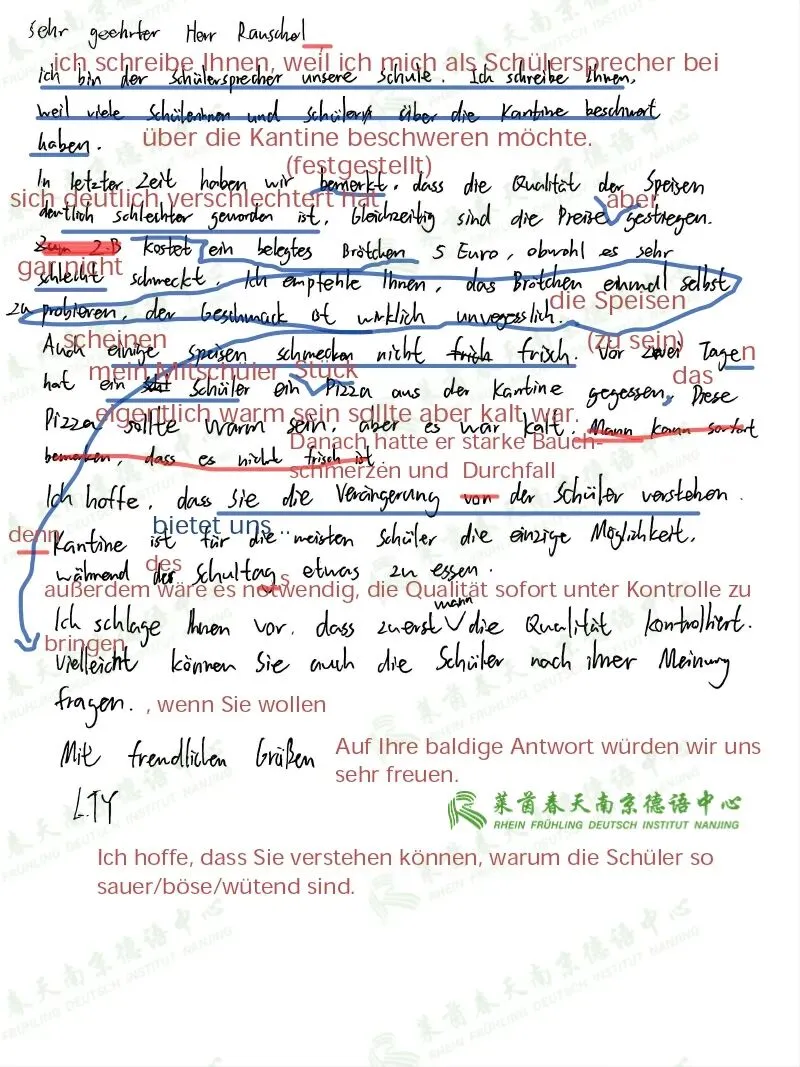 Sehr geehrter Herr Rauschel
ich schreibe Ihnen, weil ich mich als Schülersprecher bei
Ich bin der Schülersprecher unsere Schule. Ich schreibe Ihnen,
weil viele Schülerinnen und Schüler über die Kantine beschwert
haben.
über die Kantine beschweren möchte.
(festgestellt)
In letzter Zeit haben wir bemerkt, dass die Qualität der Speisen
sich deutlich verschlechtert hat
aber
deutlich schlechter geworden ist. Gleichzeitig sind die Preise gestiegen.
Zum z.B kostet ein belegtes Brötchen 5 Euro, obwohl es sehr
gar nicht
schlecht schmeckt. Ich empfehle Ihnen, das Brötchen einmal selbst
die Speisen
zu probieren, der Geschmack ist wirklich unvergesslich.
scheinen
(zu sein)
Auch einige speisen schmecken nicht frisch. Vor zwei Tagen
mein Mitschüler Stück
das
hat ein Schüler ein Pizza aus der Kantine gegessen, Diese
eigentlich warm sein sollte aber kalt war.
Pizza sollte warm sein, aber es war kalt. Mann kann sofort
Danach hatte er starke Bauch-
bemerken, dass es nicht frisch ist
schmerzen und Durchfall
Ich hoffe, dass Sie die Verängerung von der Schüler verstehen.
denn
bietet uns ..
Kantine ist für die meisten Schüler die einzige Möglichkeit,
des
während des Schultags etwas zu essen.
außerdem wäre es notwendig, die Qualität sofort unter Kontrolle zu
mann
Ich schlage Ihnen vor, dass zuerst die Qualität kontrolliert.
bringen
Vielleicht können Sie auch die Schüler nach ihrer Meinung
fragen. , wenn Sie wollen
Mit frendlichen Grüßen
Auf Ihre baldige Antwort würden wir uns
sehr freuen.
LTY
莱茵春天南京德语中心
RHEIN FRÜHLING DEUTSCH INSTITUT NANJING
Ich hoffe, dass Sie verstehen können, warum die Schüler so
sauer/böse/wütend sind.